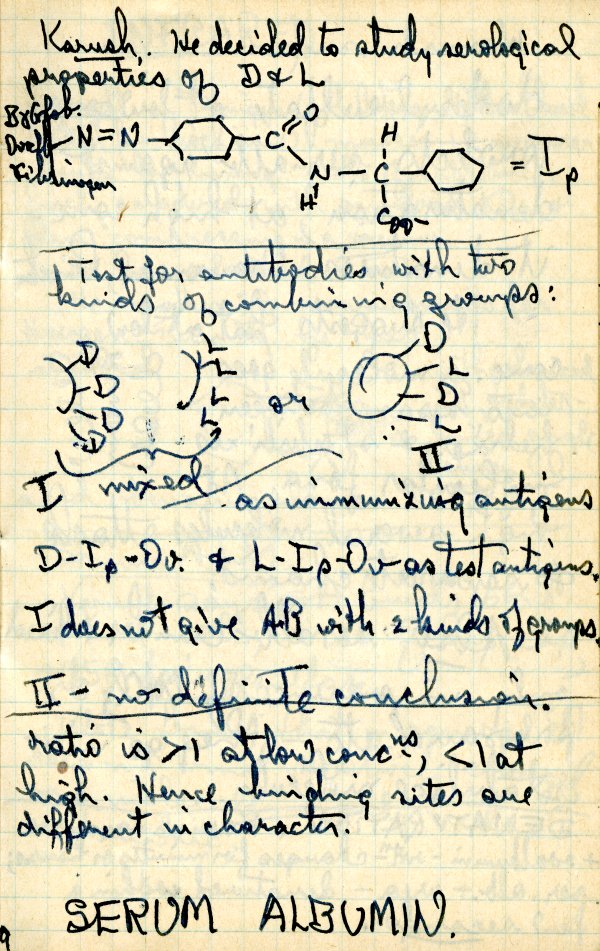 Karush. He decided to study serological
properties of D & L
N=N C O N H H C COO- = Ip
Test for antibodies with two
kinds of combining groups:
D D D D L L L L or D L D L
II
I mixed as immunizing antigens
D-Ip-Ov. & L-Ip-Ov as test antigens.
I does not give AB with 2 kinds of groups.
II - no definite conclusion.
ratio is >1 at low concns, <1 at
high. Hence binding sites are
different in character.
SERUM ALBUMIN.
9